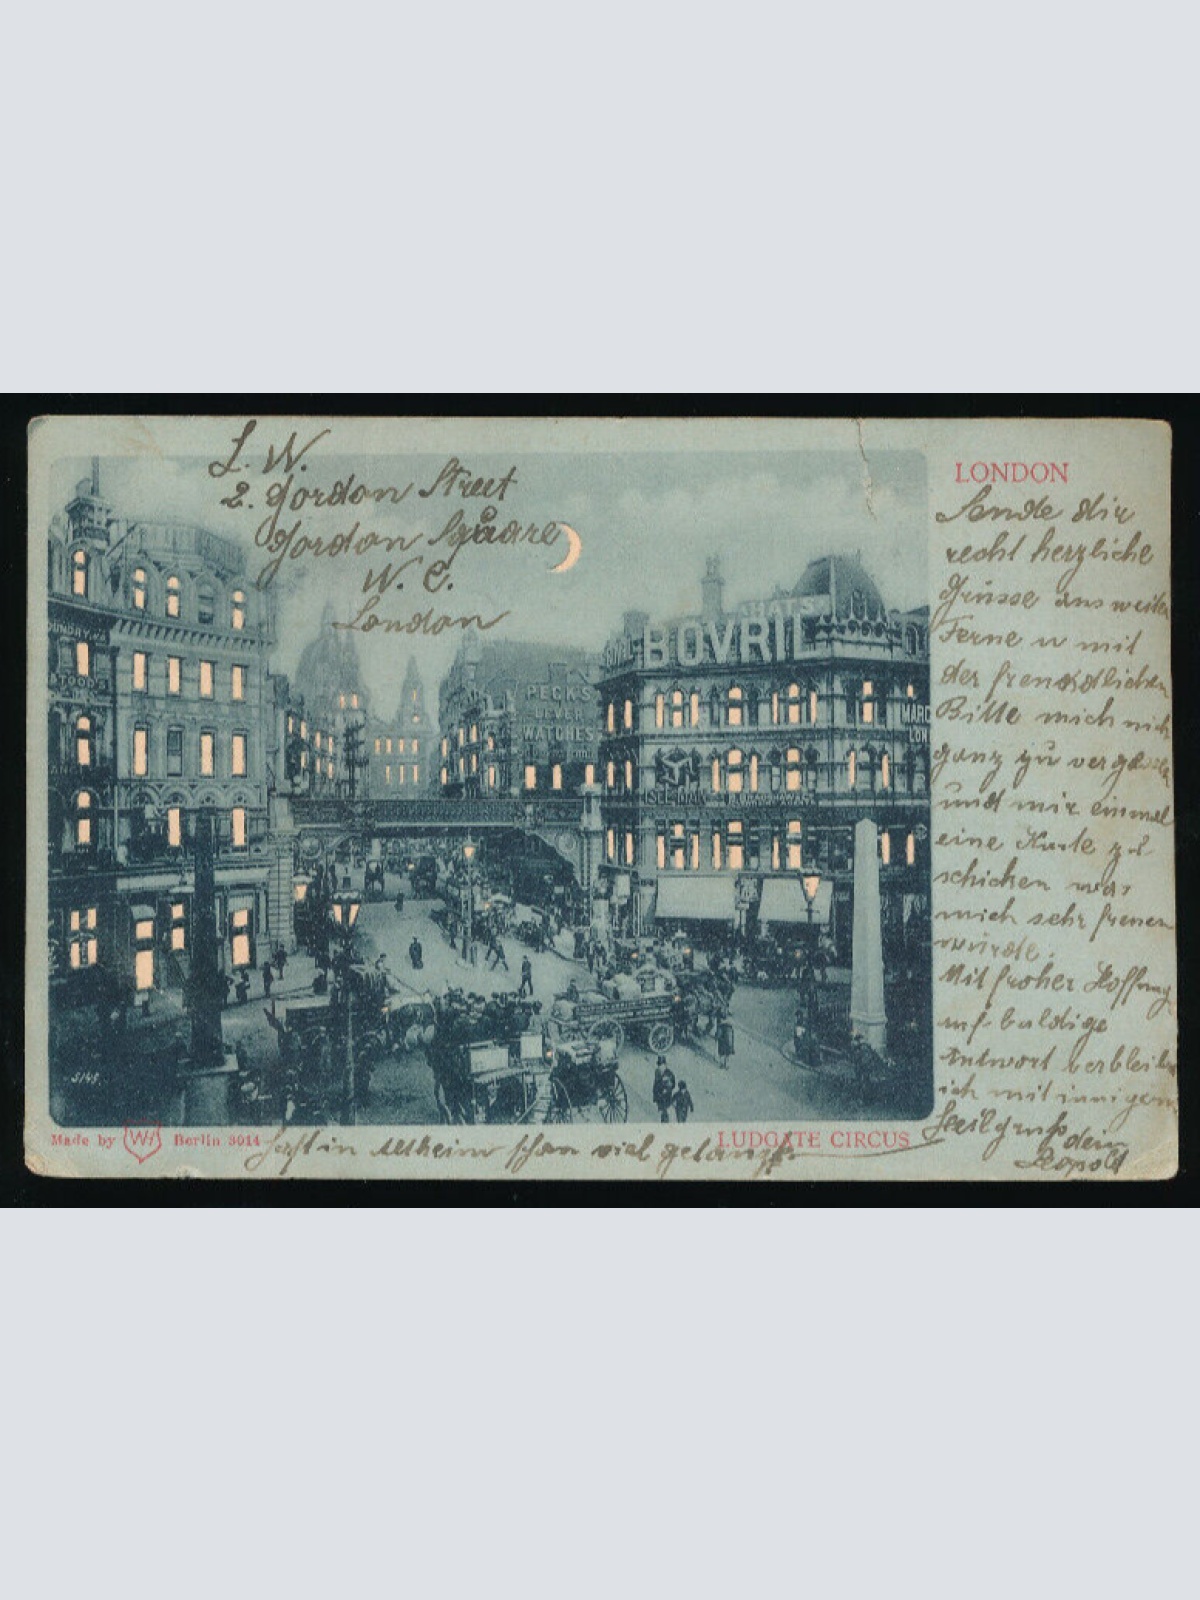 L. W.
2. Gordon Street
Gordon Square
W. C.
London
LONDON
Sende dir
recht herzliche
Grüsse aus weiter
Ferne u mit
der freundlichen
Bitte mich nich
ganz zu vergessen
und mir einmal
eine Karte zu
schicken was
mich sehr freuen
würde.
Mit froher Hoffnung
auf baldige
Antwort verbleibe
ich mit innigem
Heilgruß dein
Leopold
BOVRIL
PECK'S
LEVER
WATCHES
S145
Made by W Berlin 3014
LUDGATE CIRCUS
in schon viel getanzt.